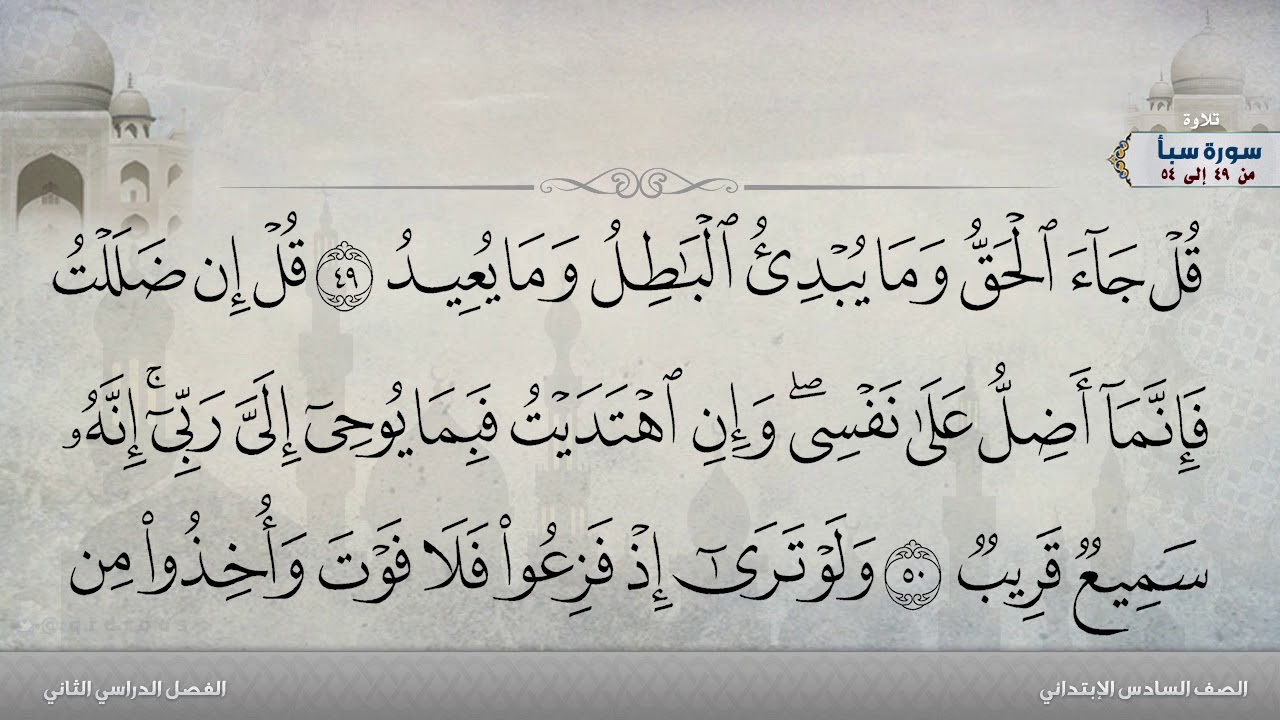 تلاوة
سورة سبأ
من ٤٩ إلى ٥٤
قُلۡ جَآءَ ٱلۡحَقُّ وَمَا يُبۡدِئُ ٱلۡبَٰطِلُ وَمَا يُعِيدُ ٤٩ قُلۡ إِن ضَلَلۡتُ
فَإِنَّمَآ أَضِلُّ عَلَىٰ نَفۡسِيۖ وَإِنِ ٱهۡتَدَيۡتُ فَبِمَا يُوحِيٓ إِلَيَّ رَبِّيٓۚ إِنَّهُۥ
سَمِيعٞ قَرِيبٞ ٥٠ وَلَوۡ تَرَىٰٓ إِذۡ فَزِعُواْ فَلَا فَوۡتَ وَأُخِذُواْ مِن
الصف السادس الإبتدائي
الفصل الدراسي الثاني